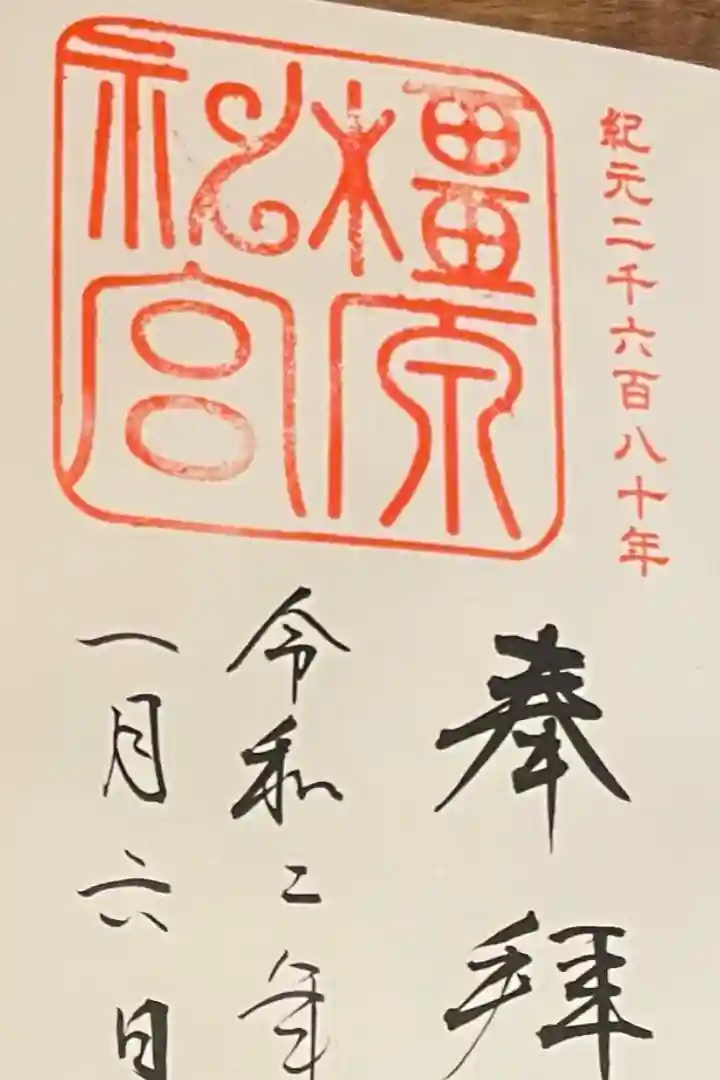 紀元二千六百八十年
橿原
神宮
奉拝
令和二年
一月六日